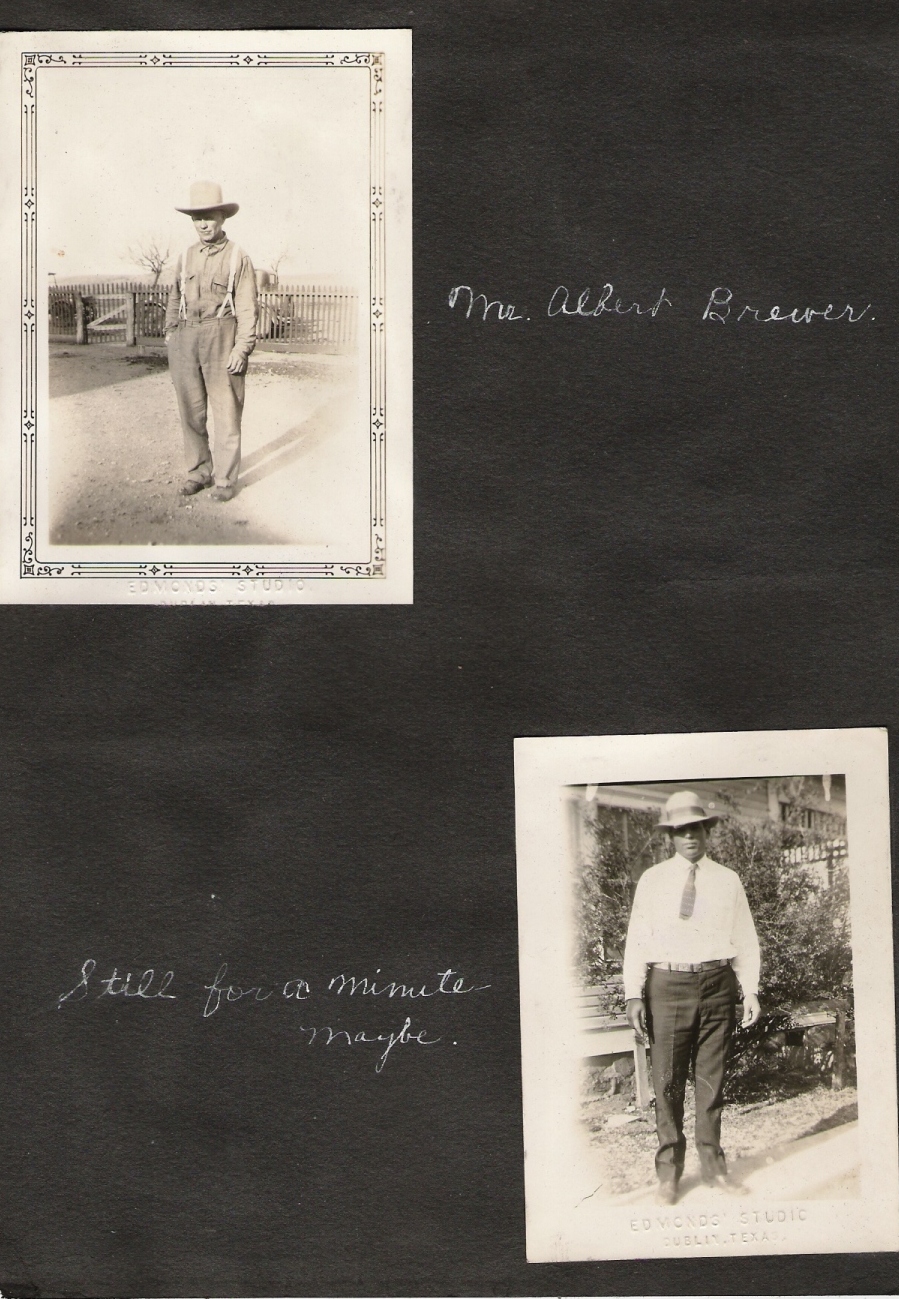 Mr. Albert Brewer.
EDMONDS' STUDIO
DUBLIN, TEXAS.
Still for a minute
maybe.
EDMONDS' STUDIO
DUBLIN, TEXAS.